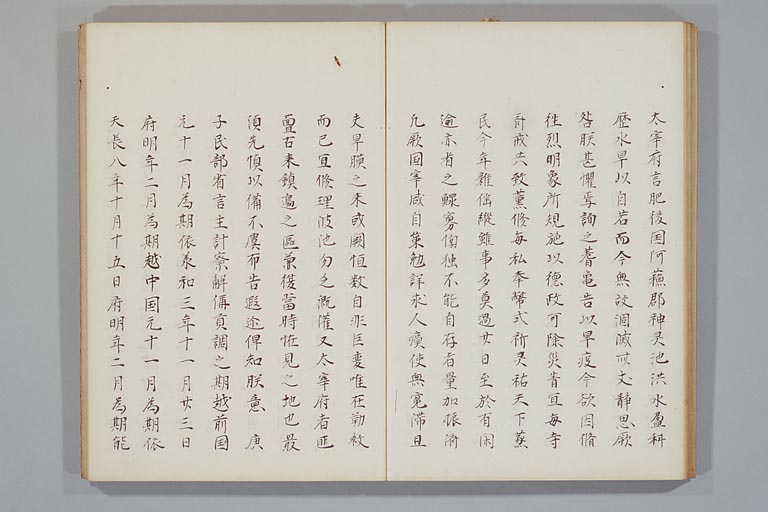 太宰府言肥後国阿蘓郡神霊池洪水盈科
歴水旱以自若而今無故涸減卌丈静思厥
咎朕甚懼焉詢之蓍亀告以旱疫今欲因脩
往烈明象所規施以徳政可除災眚宜毎寺
斎戒共致薫修毎社奉幣式祈霊祐天下蒸
民今年雑徭縦雖事多莫過廿日至於有閑
逾亦省之鰥寡惸独不能自存者量加振済
凡厥国宰咸自策勉詳求人瘼使無寃滞且
夫旱暵之来或關恒数自非応変唯在勤救
而已宜修理陂池勿乏漑灌又太宰府者匪
啻古来鎮邉之區兼復當時恠見之地也最
須先慎以備不虞布告遐迩俾知朕意 庚
子民部省言主計寮解偁貢調之期越前国
元十一月為期依承和三年十一月廿三日
府明年二月為期越中国元十一月為期依
天長八年十月十五日府明年二月為期能